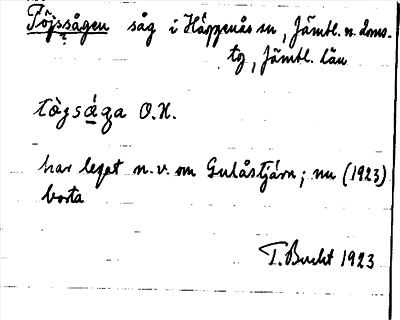 Töjssågen såg i Häggenås sn, Jämtl. n. doms.
tg, Jämtl. län
tògsága O.H.
har legat n.v. om Gulåstjärn; nu (1923)
borta
T. Bucht 1923